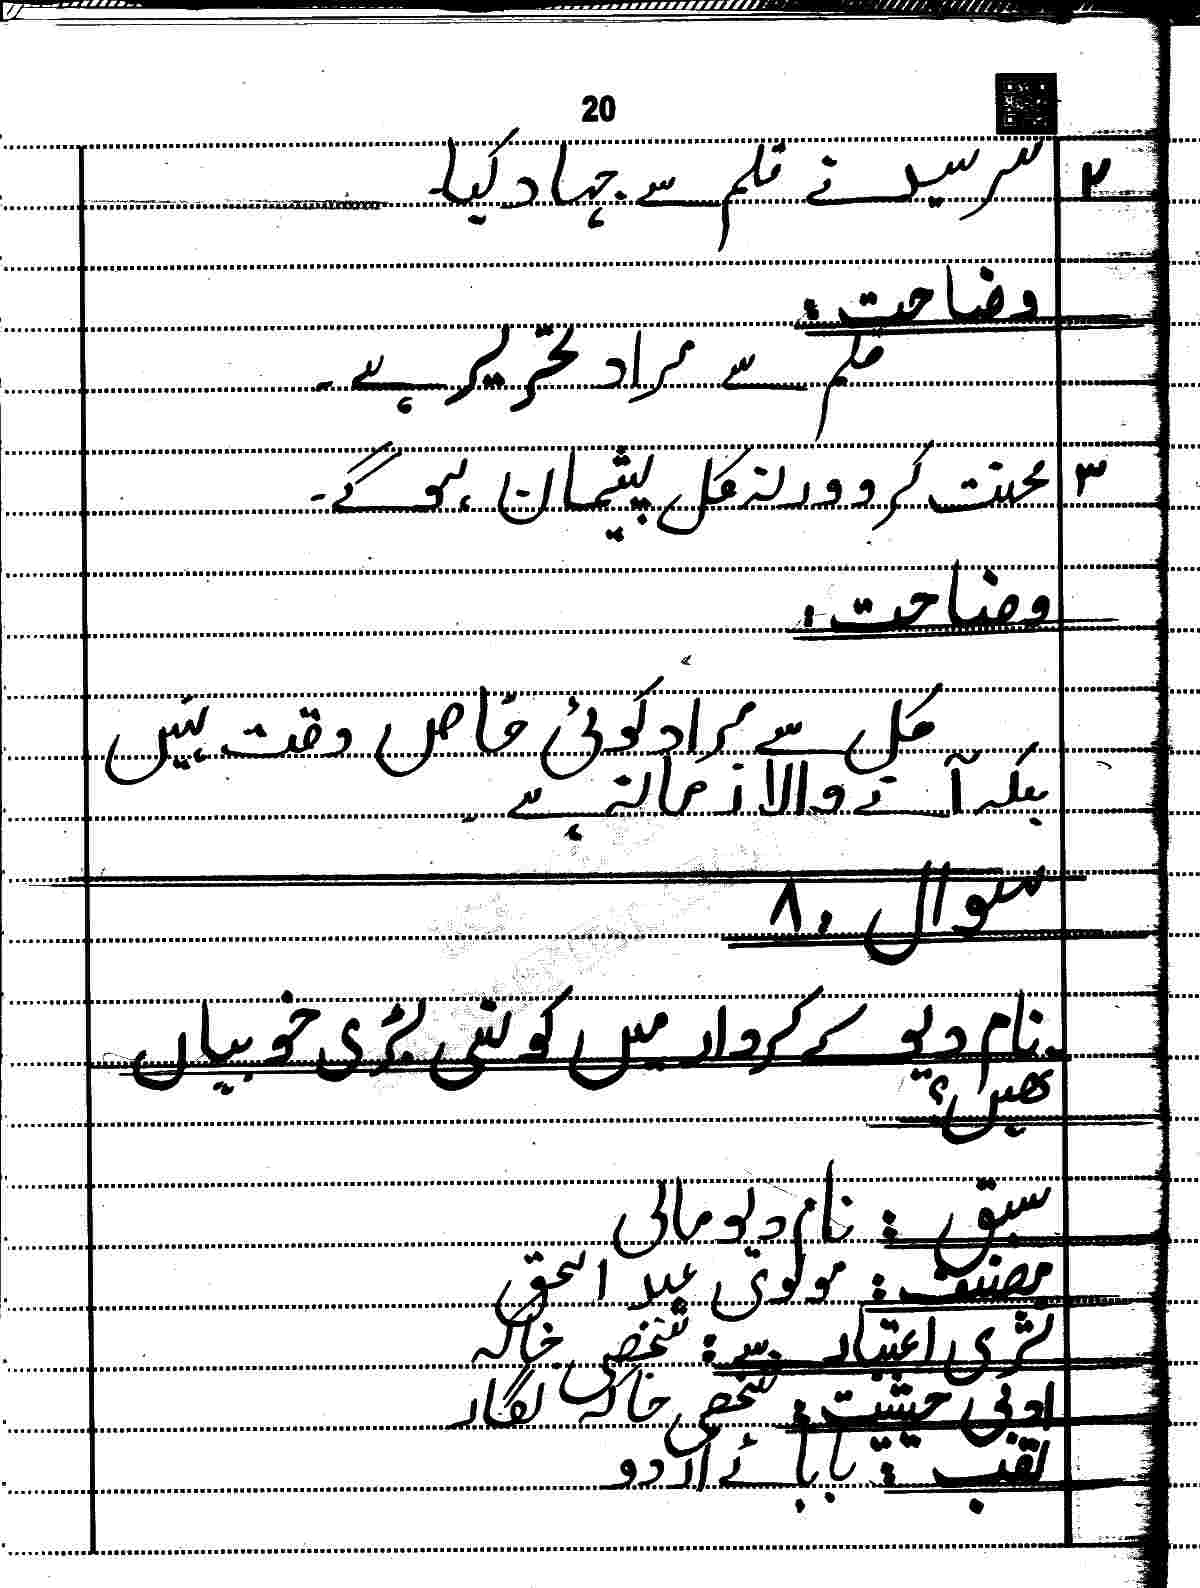 20
۲ سرسید نے قلم سے جہاد کیا۔
وضاحت:
قلم سے مراد تحریر ہے۔
۳ محنت کرو ورنہ کل پشیمان ہو گے۔
وضاحت:
کل سے مراد کوئی خاص وقت نہیں
بلکہ آنے والا زمانہ ہے۔
سوال: ۸
نام دیو کے کردار میں کونسی بڑی خوبیاں
تھیں؟
سبق: نام دیو مالی
مصنف: مولوی عبد الحق
نثری اعتبار سے: شخصی خاکہ
ادبی حیثیت: شخصی خاکہ نگار
لقب: بابائے اردو